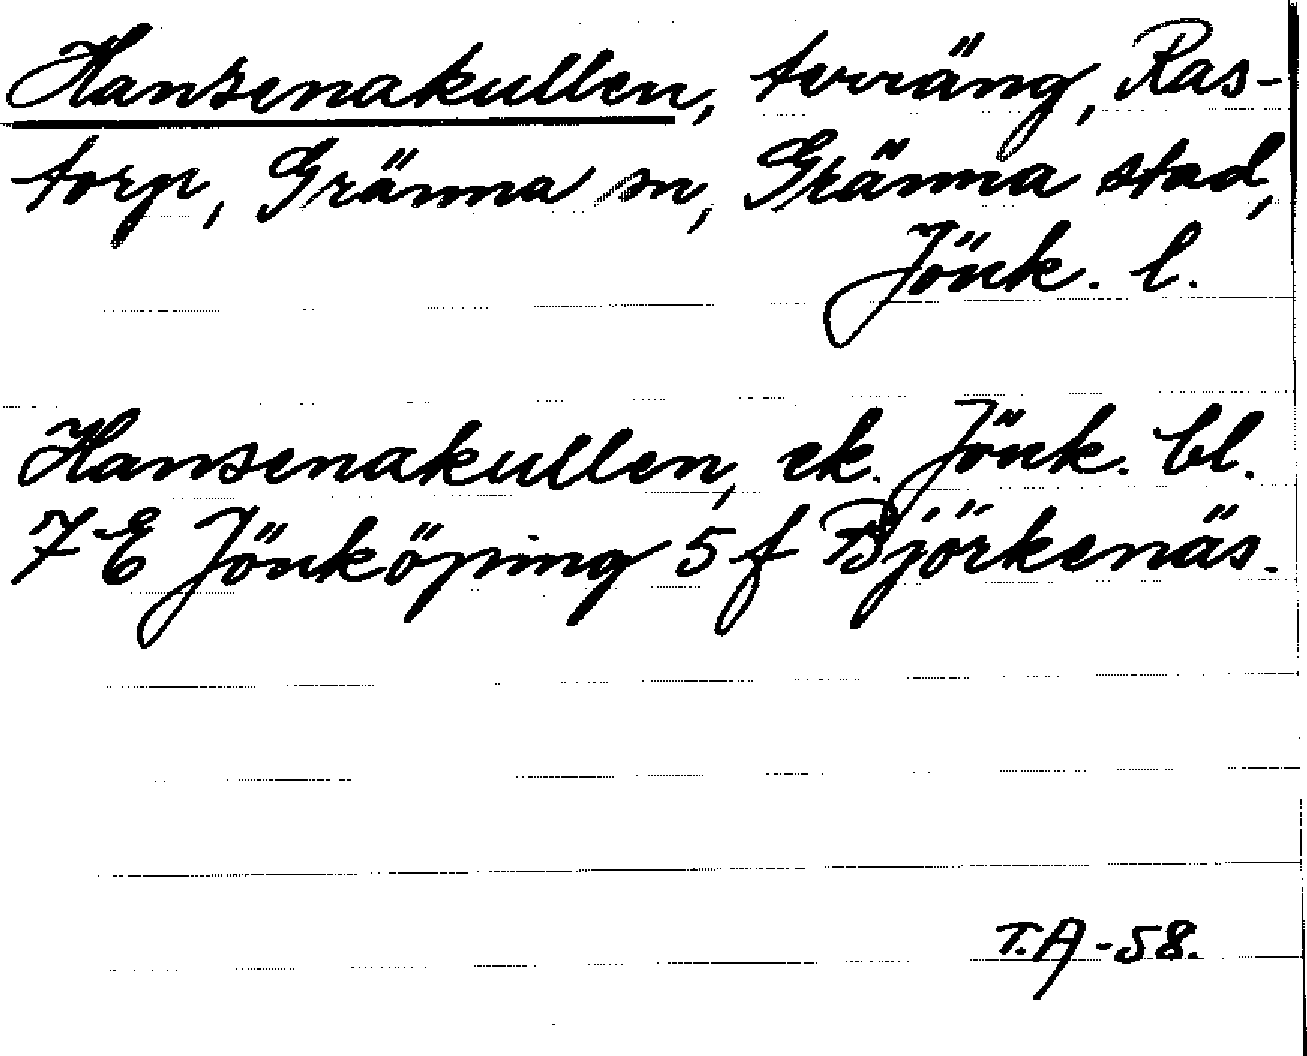 Hansenakullen, terräng, Ras-
torp, Gränna sn, Gränna stad,
Jönk. l.
Hansenakullen, ek. Jönk. bl.
7 E Jönköping 5 f Björkenäs.
T.A-58.